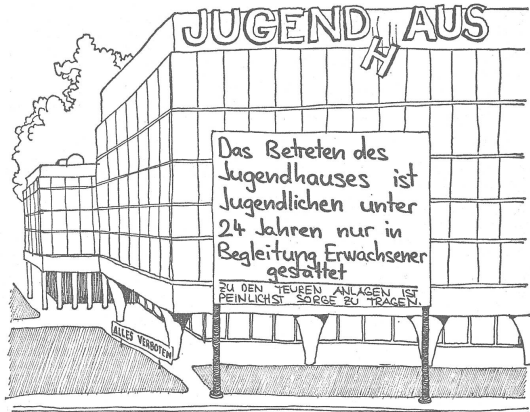 JUGENDHAUS
Das Betreten des
Jugendhauses ist
Jugendlichen unter
24 Jahren nur in
Begleitung Erwachsener
gestattet
ZU DEN TEUREN ANLAGEN IST
PEINLICHST SORGE ZU TRAGEN.
ALLES VERBOTEN